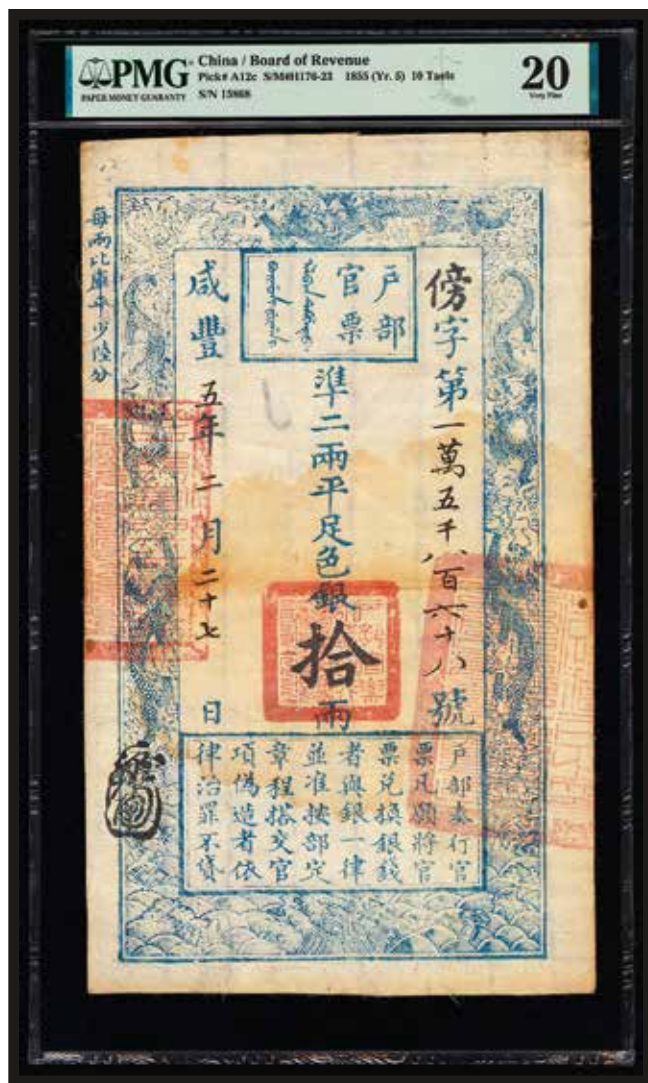 PMG
PAPER MONEY GUARANTY
China / Board of Revenue
Pick# A12c S/M#H176-23 1855 (Yr. 5) 10 Taels
S/N 15868
20
Very Fine
傍字第一萬五千八百六十八號
戶部
官票
準二兩平足色銀拾兩
咸豐五年二月二十七日
每兩比庫平少陸分
戶部奏行官
票凡願將官
票兌換銀錢
者與銀一律
並准按部定
章程搭交官
項偽造者依
律治罪不貸